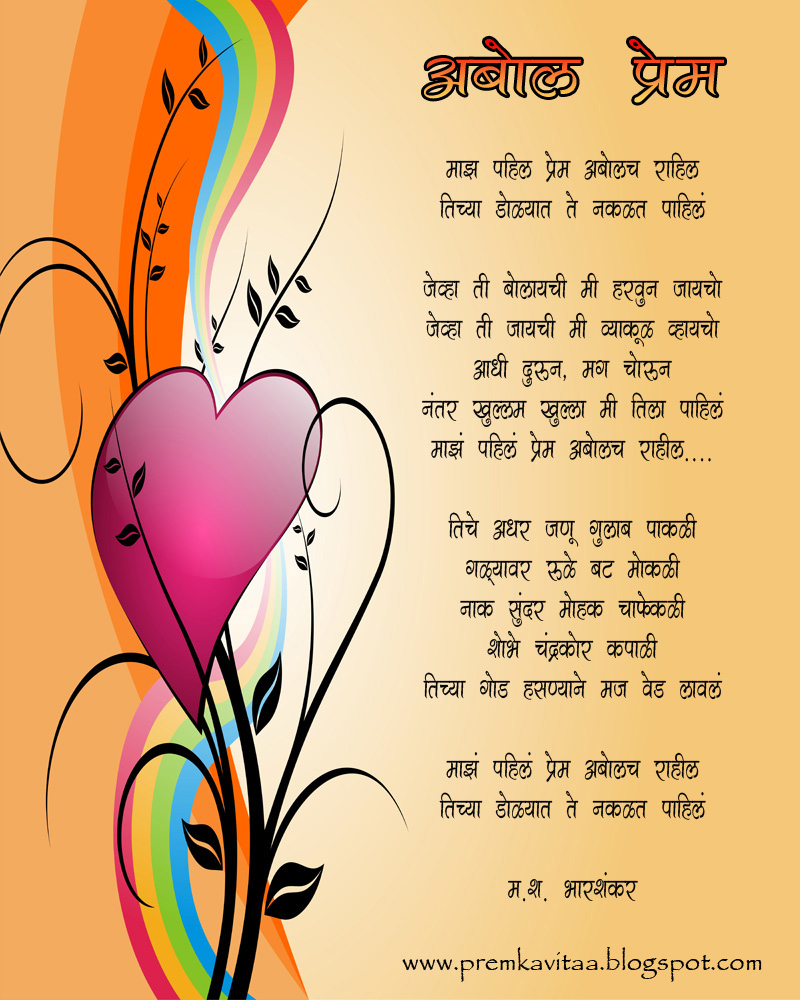 अबोल प्रेम
माझ पहिल प्रेम अबोलच राहिल
तिच्या डोळयात ते नकळत पाहिलं
जेव्हा ती बोलायची मी हरवुन जायचो
जेव्हा ती जायची मी व्याकूळ व्हायचो
आधी दुरून, मग चोरून
नंतर खुल्लम खुल्ला मी तिला पाहिलं
माझं पहिलं प्रेम अबोलच राहील....
तिचे अधर जणू गुलाब पाकळी
गळ्यावर रूळे बट मोकळी
नाक सुंदर मोहक चाफेकळी
शोभे चंद्रकोर कपाळी
तिच्या गोड हसण्याने मज वेड लावलं
माझं पहिलं प्रेम अबोलच राहील
तिच्या डोळयात ते नकळत पाहिलं
म.श. भारशंकर
www.premkavitaa.blogspot.com